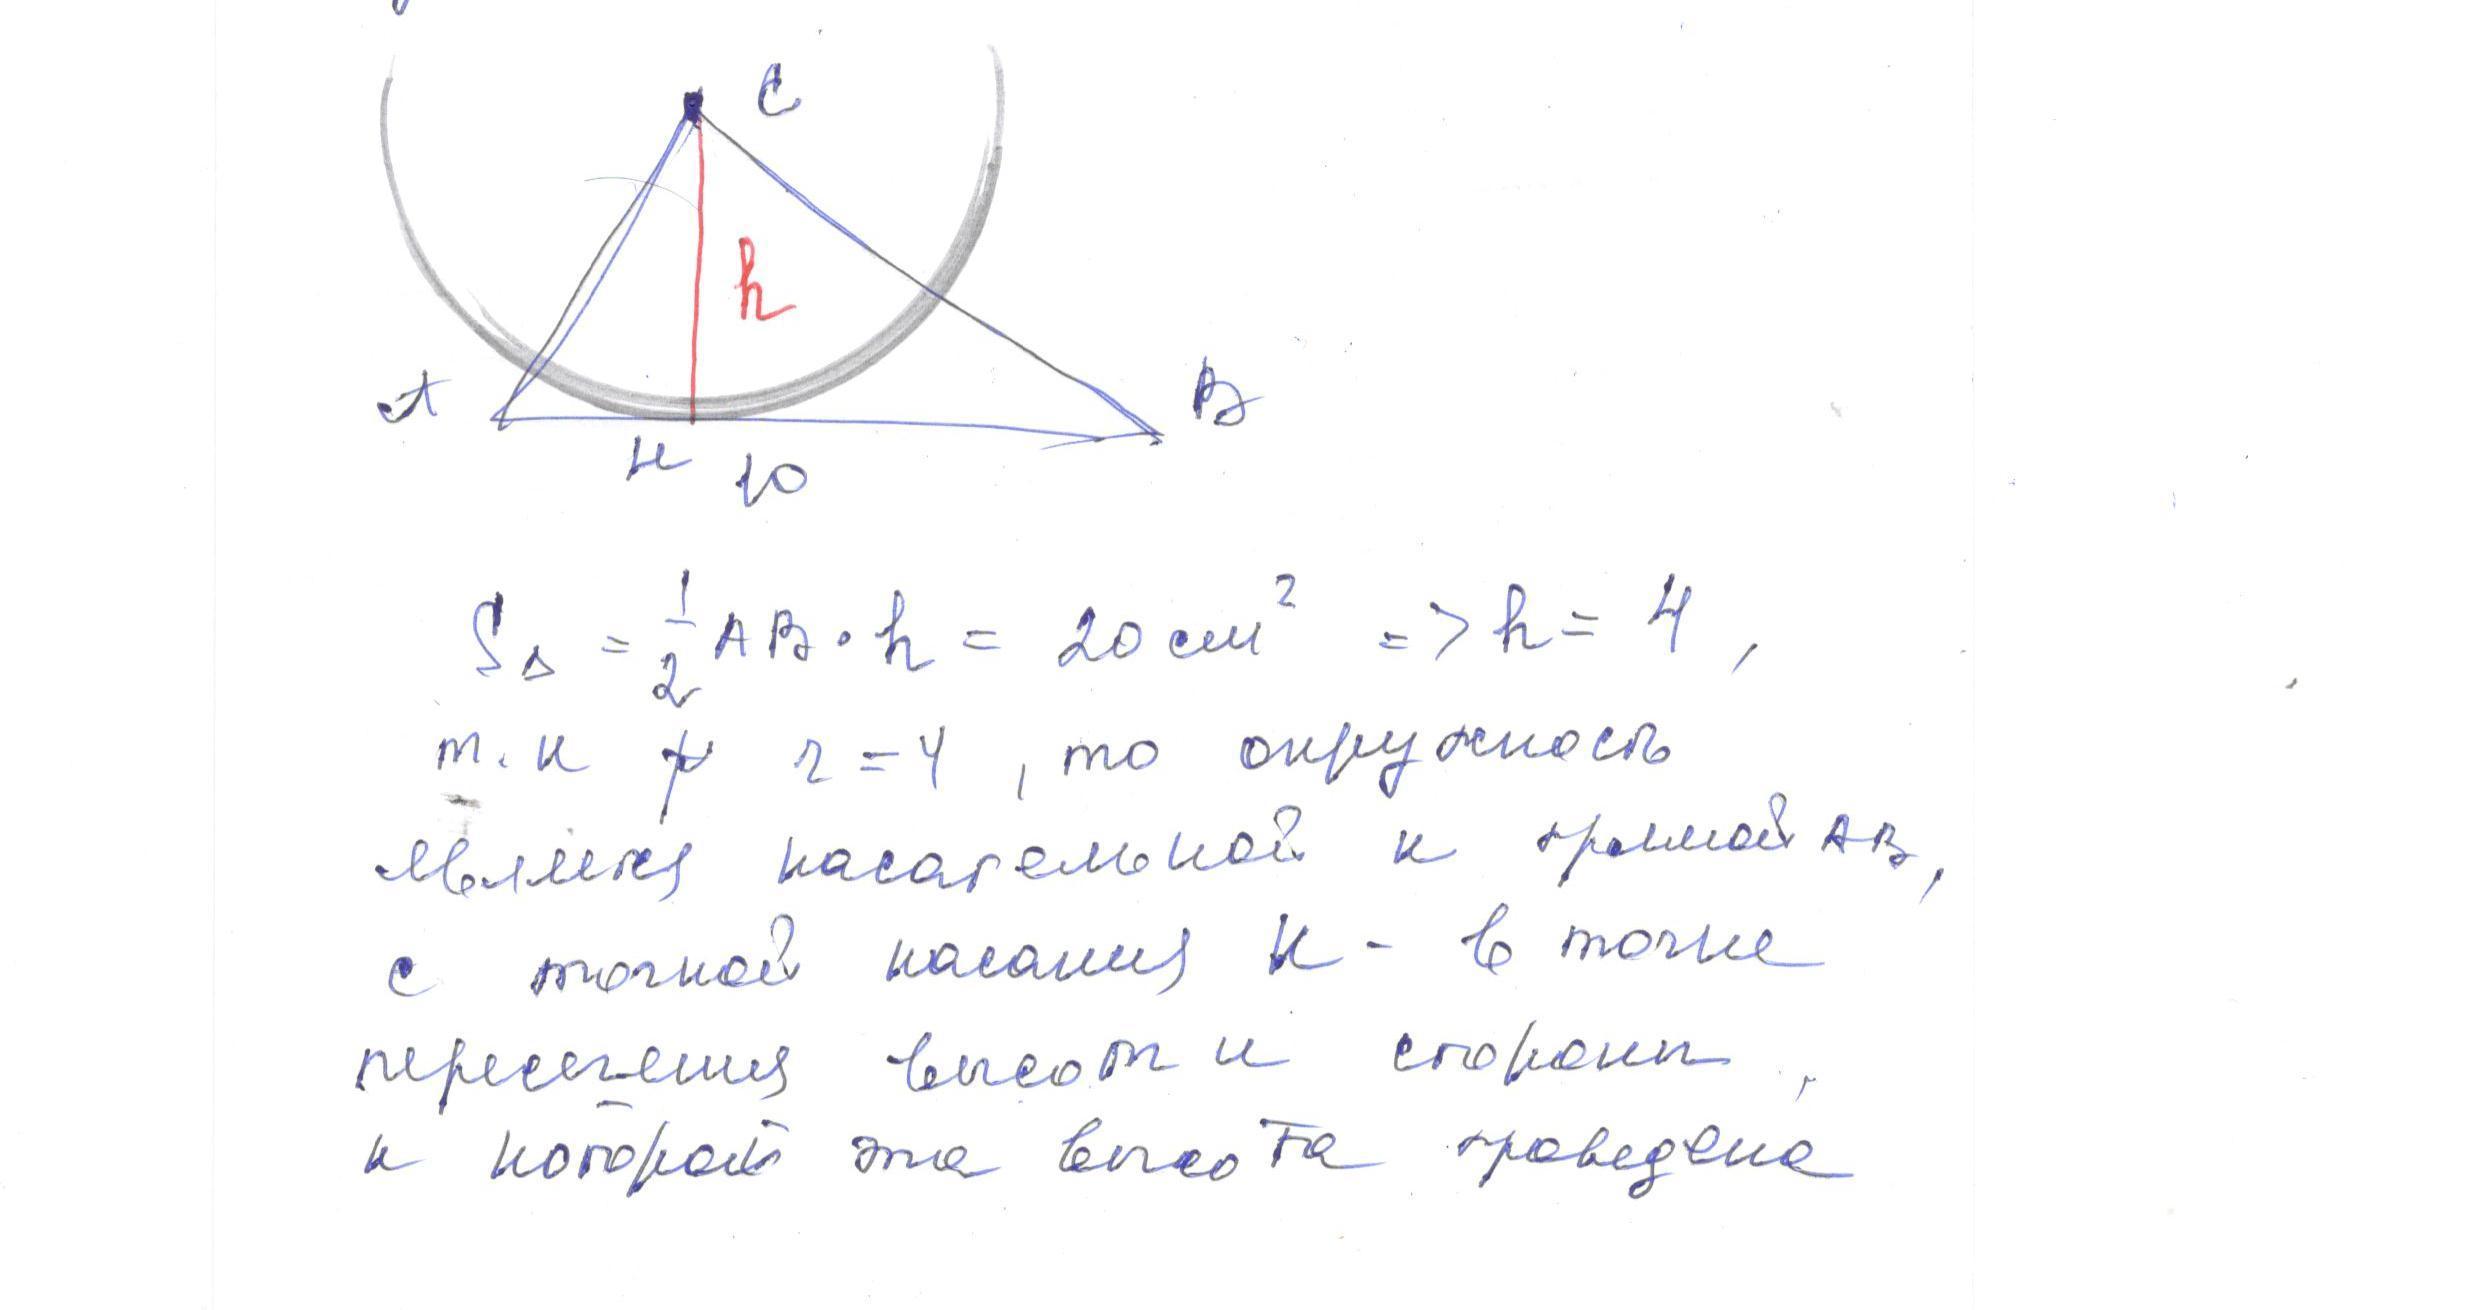 C
h
A
B
К
10
S△ = 1/2 AB · h = 20 см² => h = 4,
т.к r = 4, то окружность
является касательной к прямой AB,
с точкой касания К - в точке
пересечения высоты и стороны,
к которой эта высота проведена